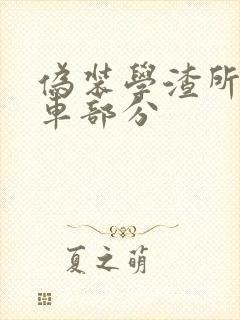 偽裝學渣所
車部分
夏之萌